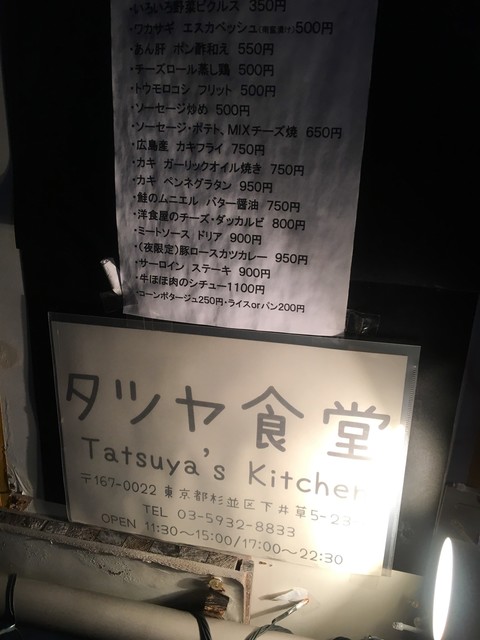 ・いろいろ野菜ピクルス 350円
・ワカサギ エスカベッシュ(南蛮漬け)500円
・あん肝 ポン酢和え 550円
・チーズロール蒸し鶏 500円
・トウモロコシ フリット 500円
・ソーセージ炒め 500円
・ソーセージ・ポテト、MIXチーズ焼 650円
・広島産 カキフライ 750円
・カキ ガーリックオイル焼き 750円
・カキ ペンネグラタン 950円
・鮭のムニエル バター醤油 750円
・洋食屋のチーズ・ダッカルビ 800円
・ミートソース ドリア 900円
・(夜限定)豚ロースカツカレー 950円
・サーロイン ステーキ 900円
・牛ほほ肉のシチュー1100円
・コーンポタージュ250円・ライスorパン200円
タツヤ食堂
Tatsuya's Kitchen
〒167-0022 東京都杉並区下井草5-23-
TEL 03-5932-8833
OPEN 11:30〜15:00/17:00〜22:30